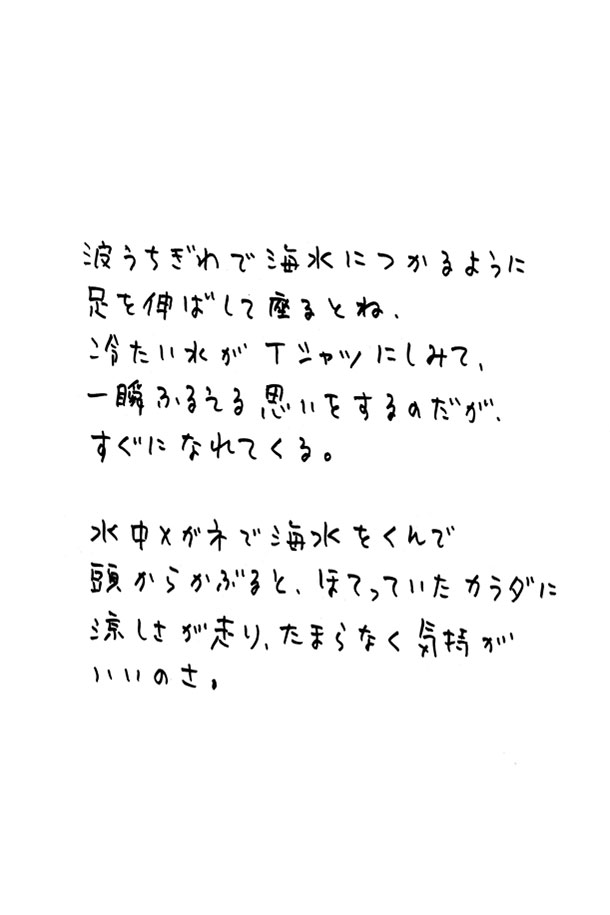 波うちぎわで海水につかるように
足を伸ばして座るとね、
冷たい水がTシャツにしみて、
一瞬ふるえる思いをするのだが、
すぐになれてくる。
水中メガネで海水をくんで
頭からかぶると、ほてっていたカラダに
涼しさが走り、たまらなく気持が
いいのさ。